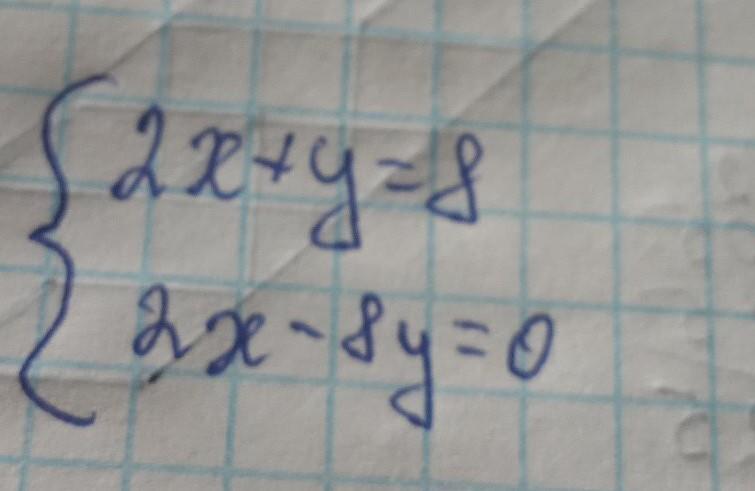 2x+y=8
2x-8y=0